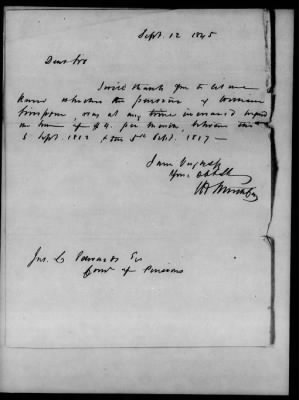 Sept. 12 1845
Dear Sir
I will thank you to let me
know whether the pension of
Simpson, was at any time increased beyond
the sum of $4. per month, between the
5 Sept. 1812 & the 5th Sept. 1817 —
I am Very resp
Your obt St
Jas. L Edwards Esq
Comr of Pensions